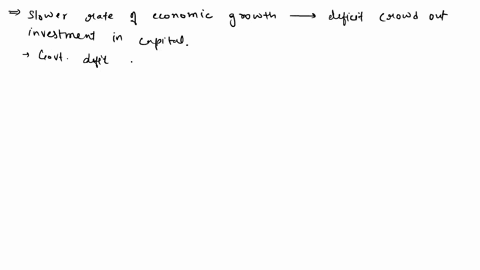 ⇒ Slower rate of economic growth ⟶ deficit crowd out
investment in capital.
→ Govt. defit .